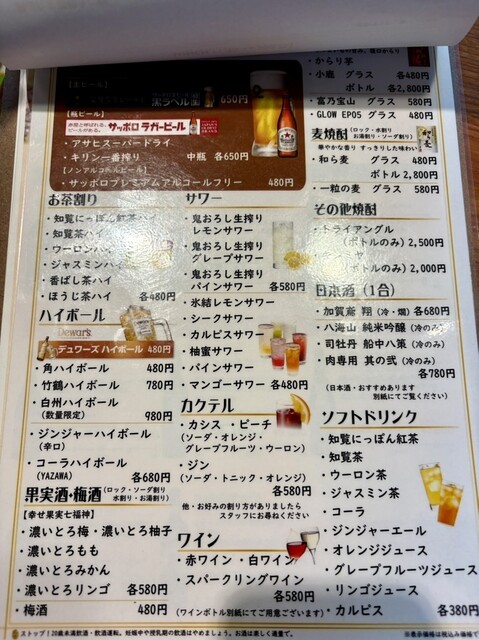 【生ビール】
黒ラベル 650円
【瓶ビール】
サッポロ ラガービール
・アサヒスーパードライ
・キリン一番搾り 中瓶 各650円
【ノンアルコールビール】
・サッポロプレミアムアルコールフリー 480円
お茶割り
・知覧にっぽん紅茶ハイ
・知覧茶ハイ
・ウーロンハイ
・ジャスミンハイ
・香ばし茶ハイ
・ほうじ茶ハイ 各480円
ハイボール
Dewar's
デュワーズ ハイボール 480円
・角ハイボール 480円
・竹鶴ハイボール 780円
・白州ハイボール
(数量限定) 980円
・ジンジャーハイボール
(辛口)
・コーラハイボール
(YAZAWA) 各680円
果実酒・梅酒 (ロック・ソーダ割り
水割り・お湯割り)
【幸せ果実七福神】
・濃いとろ梅・濃いとろ柚子
・濃いとろもも
・濃いとろみかん
・濃いとろリンゴ 各580円
・梅酒 480円
サワー
・鬼おろし生搾り
レモンサワー
・鬼おろし生搾り
グレープサワー
・鬼おろし生搾り
パインサワー 各580円
・氷結レモンサワー
・シークサワー
・カルピスサワー
・柚蜜サワー
・パインサワー
・マンゴーサワー 各480円
カクテル
・カシス・ピーチ
(ソーダ・オレンジ・
グレープフルーツ・ウーロン)
・ジン
(ソーダ・トニック・オレンジ)
各580円
他・お好みの割り方がありましたら
スタッフにお尋ねください
ワイン
・赤ワイン・白ワイン
・スパークリングワイン
各580円
(ワインボトル別紙にてご用意ございます)
・からり芋
・小鹿 グラス 各480円
ボトル 各2,800円
・富乃宝山 グラス 580円
・GLOW EP05 グラス 480円
麦焼酎 (ロック・水割り
お湯割り・ソーダ割り)
華やかな香り すっきりした味わい
・和ら麦 グラス 480円
ボトル 2,800円
・一粒の麦 グラス 580円
その他焼酎
・トライアングル
(ボトルのみ) 2,500円
(ボトルのみ) 2,000円
日本酒 (1合)
・加賀鳶 翔 (冷・燗) 各680円
・八海山 純米吟醸 (冷のみ)
・司牡丹 船中八策 (冷のみ)
・肉専用 其の弐 (冷のみ)
各780円
(日本酒・おすすめあります
別紙にてご覧ください)
ソフトドリンク
・知覧にっぽん紅茶
・知覧茶
・ウーロン茶
・ジャスミン茶
・コーラ
・ジンジャーエール
・オレンジジュース
・グレープフルーツジュース
・リンゴジュース
・カルピス 各380円
ストップ!20歳未満飲酒・飲酒運転。妊娠中や授乳期の飲酒はやめましょう。お酒は楽しく適量で。